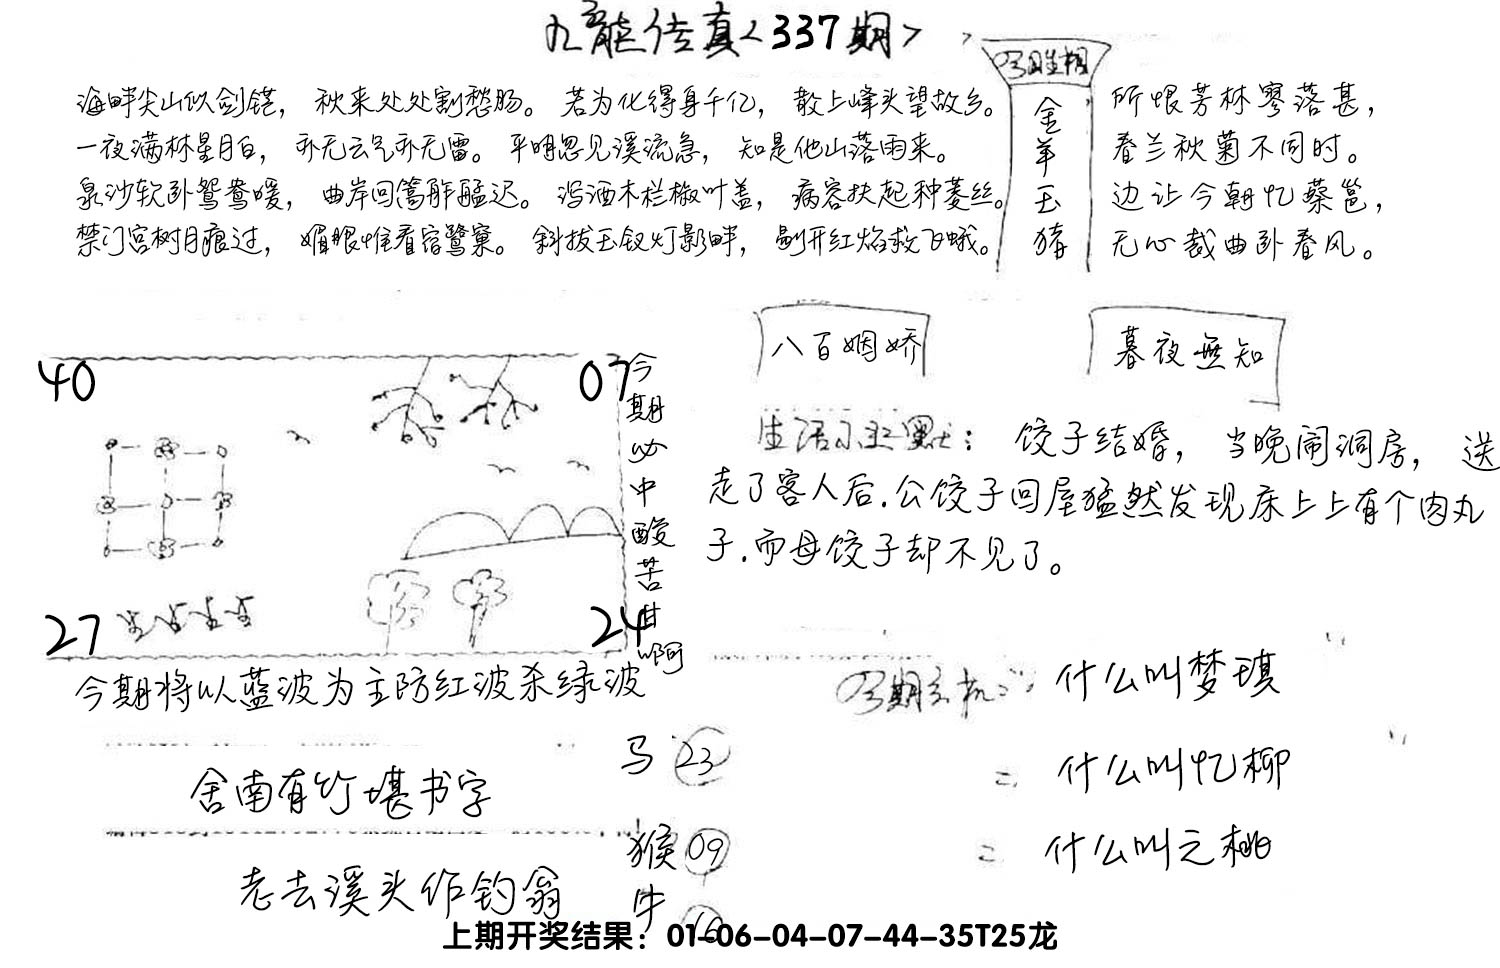 九龍传真<337期>
海畔尖山似剑铓，秋来处处割愁肠。若为化得身千亿，散上峰头望故乡。
一夜满林星月白，亦无云气亦无雷。平明忽见溪流急，知是他山落雨来。
泉沙软卧鸳鸯暖，曲岸回篙舴艋迟。泻酒木栏椒叶盖，病容扶起种菱丝。
禁门宫树月痕过，媚眼惟看宿鹭窠。斜拔玉钗灯影畔，剔开红焰救飞蛾。
今期生相
金羊玉猪
所恨芳林寥落甚，
春兰秋菊不同时。
边让今朝忆蔡邕，
无心裁曲卧春风。
八百姻娇
暮夜無知
40
07
27
24
今期必中酸苦甘啊
生活幽默：饺子结婚，当晚闹洞房，送
走了客人后.公饺子回屋猛然发现床上上有个肉丸
子.而母饺子却不见了。
今期将以蓝波为主防红波杀绿波
今期玄机：什么叫梦琪
= 什么叫忆柳
= 什么叫元桃
舍南有竹堪书字
老去溪头作钓翁
马 23
猴 09
牛 16
上期开奖结果：01-06-04-07-44-35T25龙